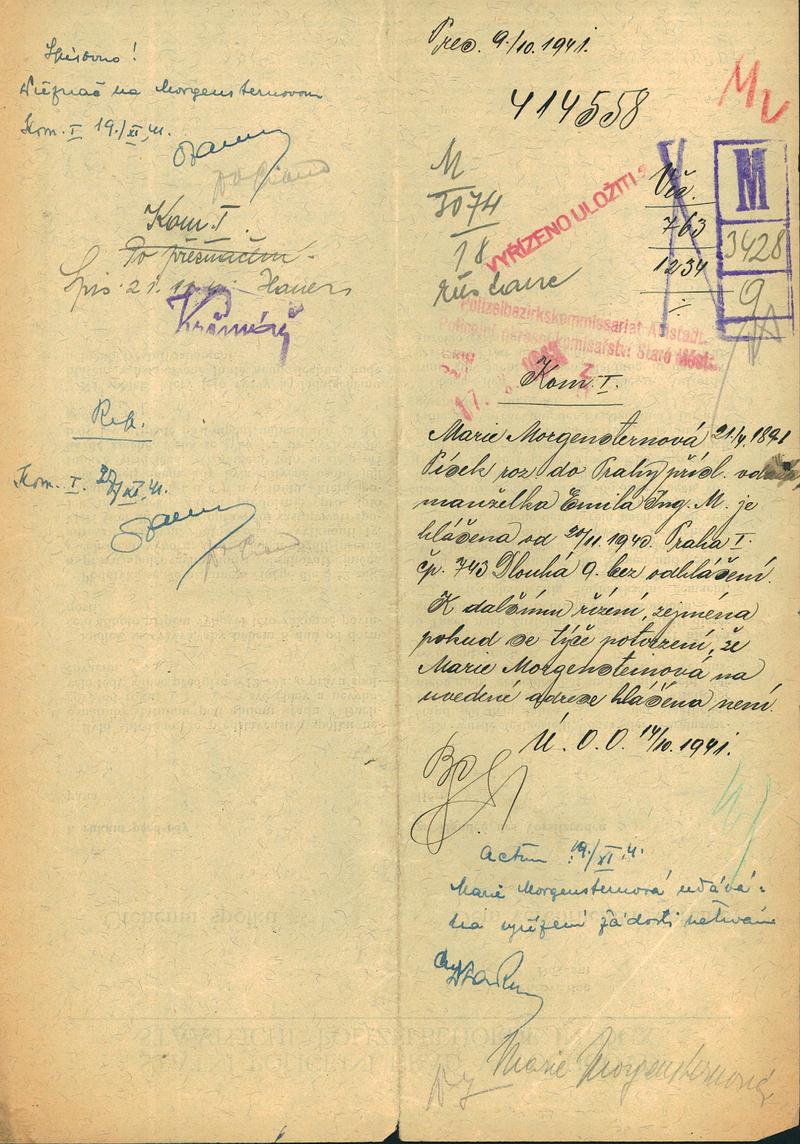 Spisovno!
na Morgensternovou
Kom. I 19/XI 41.
Kom. I.
Po přeznačení
Spis. 21.
Ref.
Kom. I. 20/XI 41.
Prec. 9./10. 1941.
414558
MV
M
3074
18
VYŘÍZENO ULOŽITI
Viz.
763
1234
M
3428
9
Polizeibezirkskommissariat Altstadt.
Policejní komisařství: Staré Město.
Kom. I.
Marie Morgensternová 21./4. 1891
Písek roz do Prahy přísl.
manželka Emila Ing. M. je
hlášena od 20/11 1940. Praha I.
čp. 743 Dlouhá 9. bez odhlášení.
K dalšímu řízení, zejména
pokud se týče potvrzení, že
Marie Morgensteinová na
uvedené adrese hlášena není.
Ú. O. O. 14/10. 1941.
Actum 19./XI 41.
Marie Morgensternová udává:
na vyřízení žádosti netrvám
Marie Morgensternová